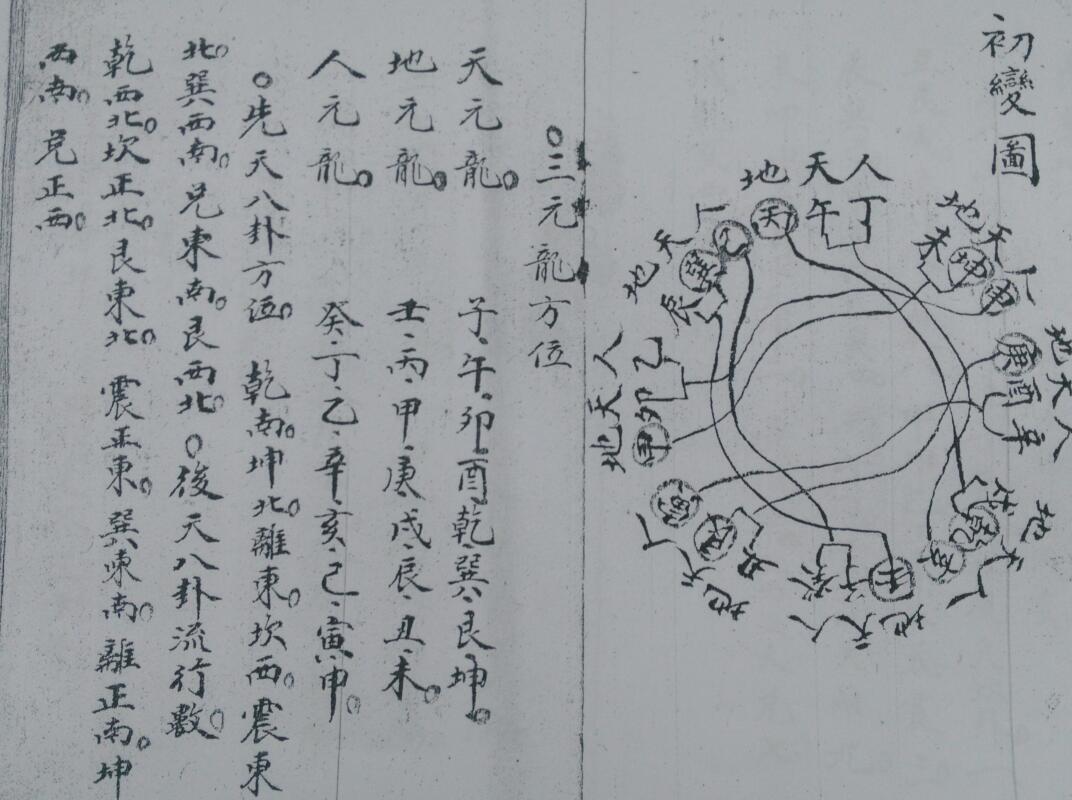 初變圖
地天人
午丁
地天人
未坤申
地天人
庚酉辛
地天人
戌乾亥
地天人
壬子癸
地天人
丑艮寅
地天人
甲卯乙
地天人
辰巽巳
○三元龍方位
天元龍。 子、午、卯、酉、乾、巽、艮、坤。
地元龍。 壬、丙、甲、庚、戌、辰、丑、未。
人元龍。 癸、丁、乙、辛、亥、己、寅、申。
○先天八卦方位。 乾南。坤北。離東。坎西。震東
北。巽西南。兌東南。艮西北。○後天八卦流行數。
乾西北。坎正北。艮東北。震正東。巽東南。離正南。坤
西南。兌正西。